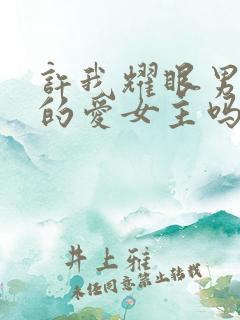 許我耀眼男
的爱女主吗
井上雅
未经同意禁止转载